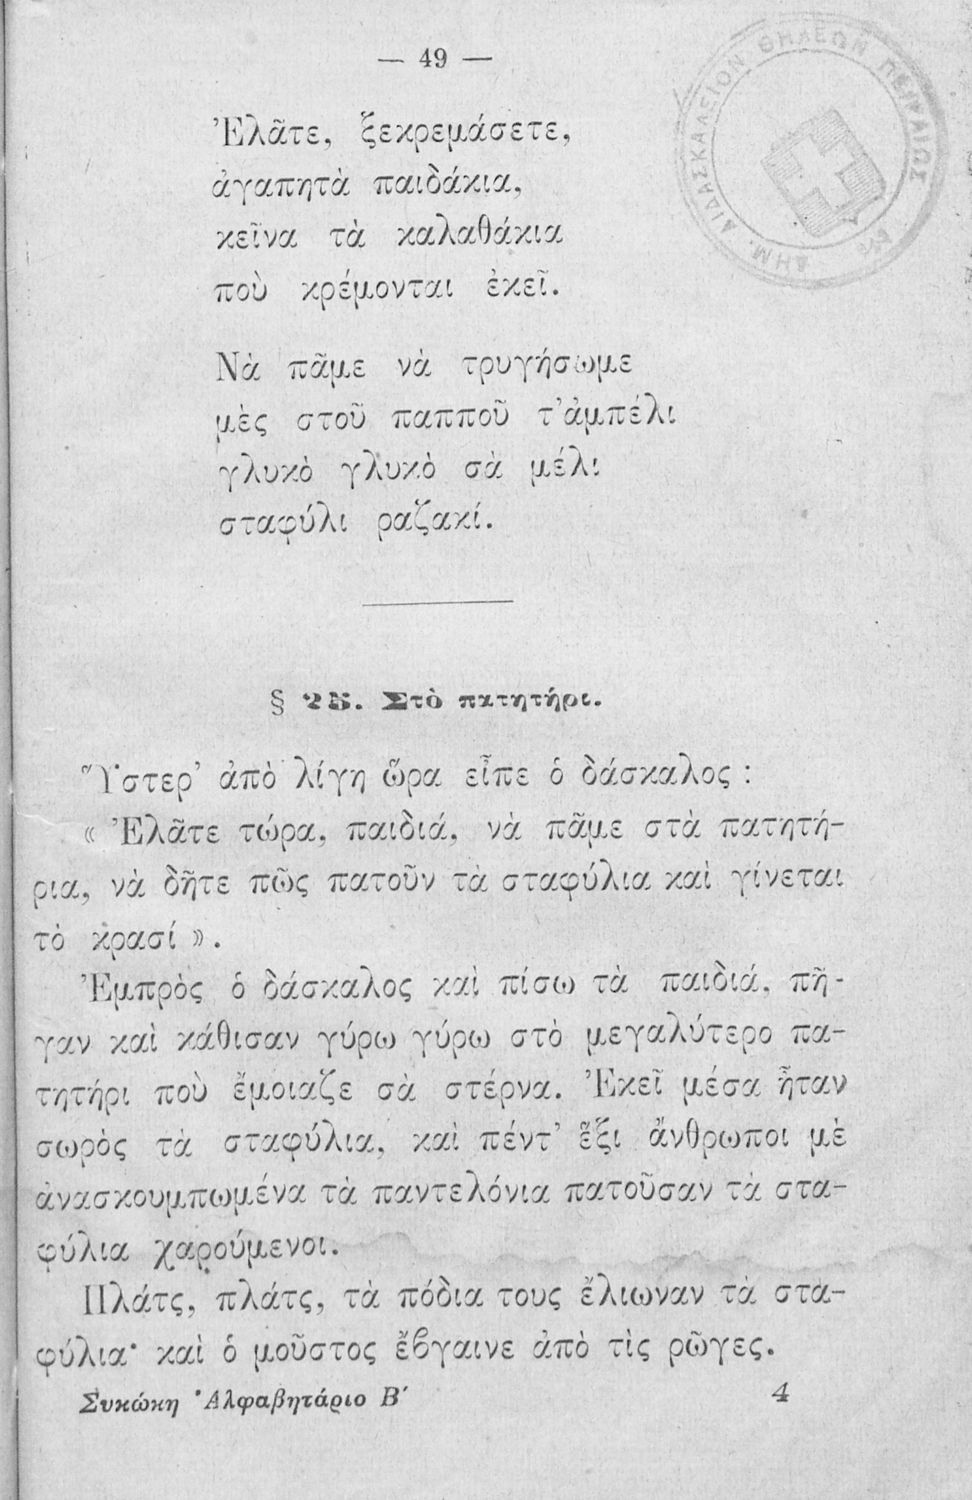 — 49 —
ΔΗΜ. ΔΙΔΑΣΚΑΛΕΙΟΝ ΘΗΛΕΩΝ ΠΕΙΡΑΙΩΣ
Ἐλᾶτε, ξεκρεμάσετε,
ἀγαπητὰ παιδάκια,
κεῖνα τὰ καλαθάκια
ποὺ κρέμονται ἐκεῖ.
Νὰ πᾶμε νὰ τρυγήσωμε
μὲς στοῦ παπποῦ τ’ἀμπέλι
γλυκὸ γλυκὸ σὰ μέλι
σταφύλι ραζακί.
§ 25. Στὸ πατητήρι.
Ὕστερ’ ἀπὸ λίγη ὥρα εἶπε ὁ δάσκαλος :
« Ἐλᾶτε τώρα, παιδιά, νὰ πᾶμε στὰ πατητή-
ρια, νὰ δῆτε πῶς πατοῦν τὰ σταφύλια καὶ γίνεται
τὸ κρασί ».
Ἐμπρὸς ὁ δάσκαλος καὶ πίσω τὰ παιδιά, πῆ-
γαν καὶ κάθισαν γύρω γύρω στὸ μεγαλύτερο πα-
τητήρι ποὺ ἔμοιαζε σὰ στέρνα. Ἐκεῖ μέσα ἦταν
σωρὸς τὰ σταφύλια, καὶ πέντ’ ἕξι ἄνθρωποι μὲ
ἀνασκουμπωμένα τὰ παντελόνια πατοῦσαν τὰ στα-
φύλια χαρούμενοι.
Πλάτς, πλάτς, τὰ πόδια τους ἔλιωναν τὰ στα-
φύλια· καὶ ὁ μοῦστος ἔβγαινε ἀπὸ τὶς ρῶγες.
Συκώκη Ἀλφαβητάριο Β΄ 4